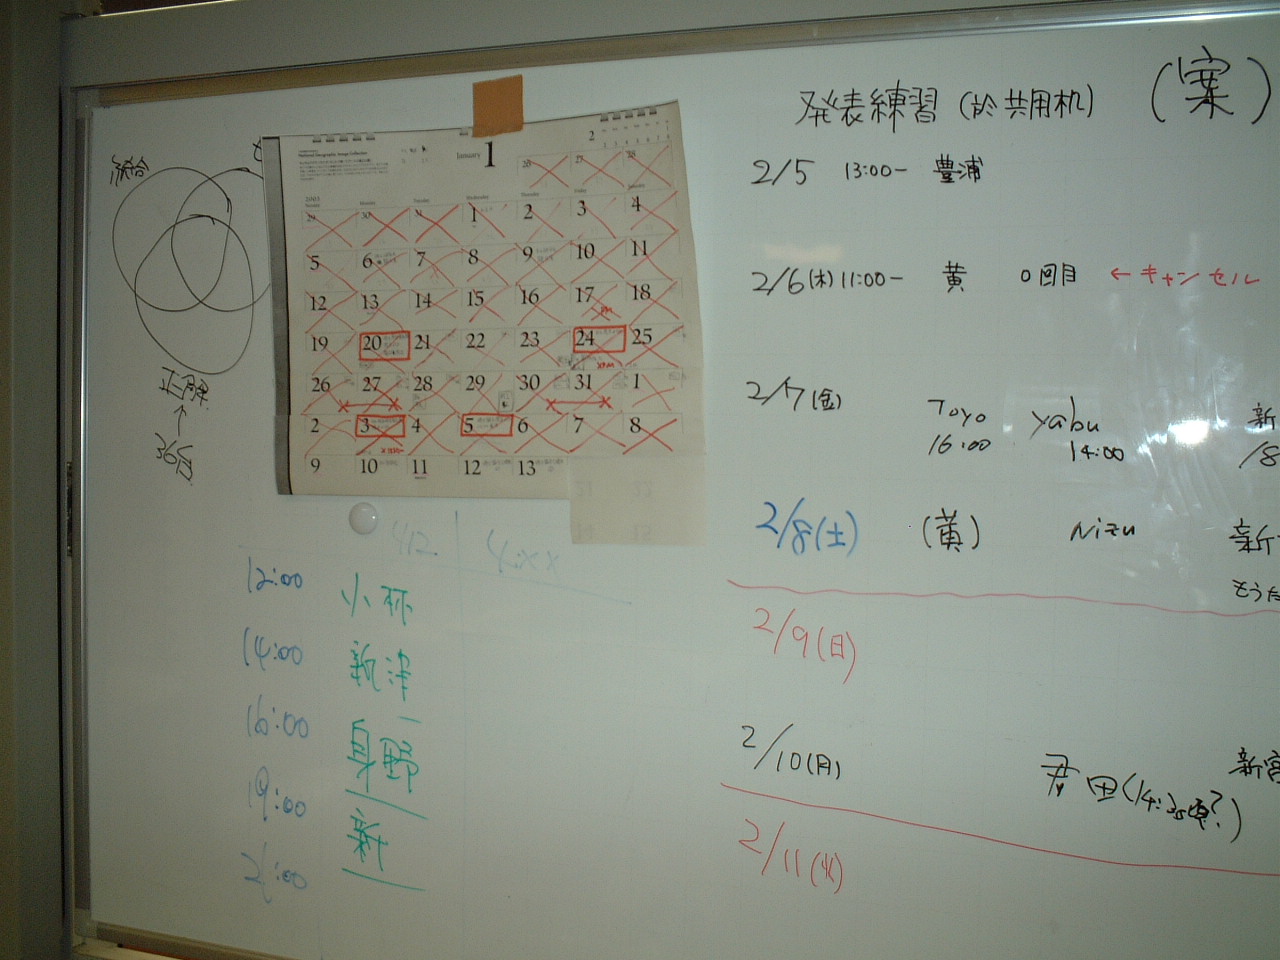 発表練習 (於 共用机) (案)
2/5 13:00- 豊浦
2/6 (木) 11:00- 黄 0回目 ← キャンセル
2/7 (金) Toyo 16:00 yabu 14:00 新 18
2/8 (土) (黄) Nizu 新
2/9 (日)
2/10 (月) 君田 (14:30頃?) 新宮
2/11 (火)
正解
↑
January 1
2003
2
26 27 28
29 30 31 1 2 3 4
5 6 7 8 9 10 11
12 13 14 15 16 17 18
19 20 21 22 23 24 25
26 27 28 29 30 31 1
2 3 4 5 6 7 8
9 10 11 12 13
4:xx
12:00 小林
14:00 新津
16:00 身野
19:00 新
21:00